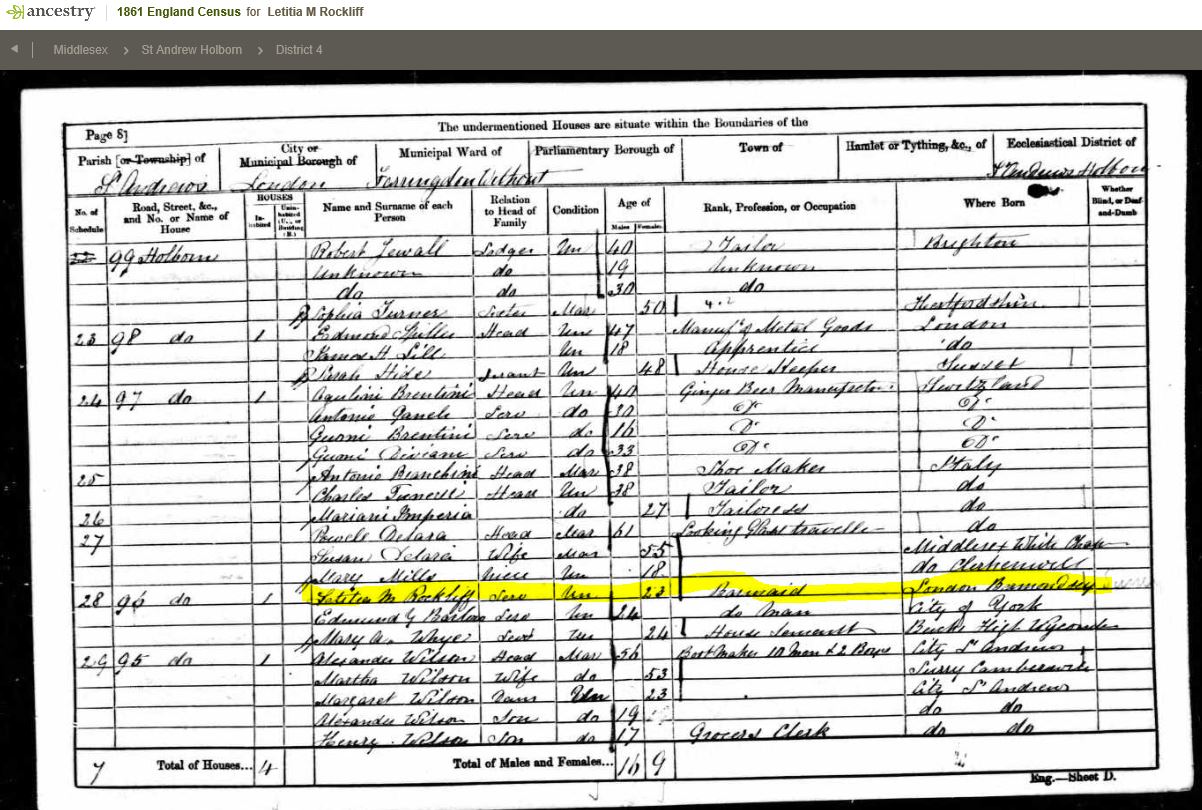 ancestry 1861 England Census for Letitia M Rockliff
Middlesex > St Andrew Holborn > District 4
Page 8]
The undermentioned Houses are situate within the Boundaries of the
Parish [or Township] of City or Municipal Borough of Municipal Ward of Parliamentary Borough of Town of Hamlet or Tything, &c., of Ecclesiastical District of
St Andrews London Farringdon Without St Andrews Holborn
No. of Schedule Road, Street, &c., and No. or Name of House HOUSES Inhabited Uninhabited (U.), or Building (B.) Name and Surname of each Person Relation to Head of Family Condition Age of Males Females Rank, Profession, or Occupation Where Born Whether Blind, or Deaf-and-Dumb
22 99 Holborn Robert Jewall Lodger Un 40 Tailor Brighton
Unknown do 19 Unknown
do do 30 do
Sophia Turner Mar 50 Hertfordshire
23 98 do 1 Edmond Head Un 47 Manufr of Metal Goods London
James H Un 18 Apprentice do
Sarah Hide Servant Un 48 House Keeper Sussex
24 97 do 1 Brentini Head Un 40 Ginger Beer Manufactr Switzland
Antonio Serv do 30 Do
Guoni Brentini Serv do 16 Do Do
Guoni Serv do 33 Do Do
25 Antonio Bianchini Head Mar 38 Shoe Maker Italy
Charles Head Un 38 Tailor do
26 Mariani Imperia do 27 Tailoress do
27 Delara Head Mar 61 Looking Glass traveller do
Susan Delara Wife Mar 55 Middlesex White Chap
Mary Mills Niece Un 18 do Clerkenwell
28 96 do 1 Letitia M Rockliff Serv Un 23 Barmaid London Bermondsey
Edmund G Barton Serv Un 24 do Man City of York
Mary A. Serv Un 24 House Servant Bucks High Wycombe
29 95 do 1 Alexander Wilson Head Mar 56 Bootmaker 10 Men & 2 Boys City St Andrews
Martha Wilson Wife do 53 Surry Camberwell
Margaret Wilson Daur Un 23 City St Andrews
Alexander Wilson Son do 19 do do
Henry Wilson Son do 17 Grocers Clerk do do
7 Total of Houses... 4 Total of Males and Females... 16 9
Eng.—Sheet D.